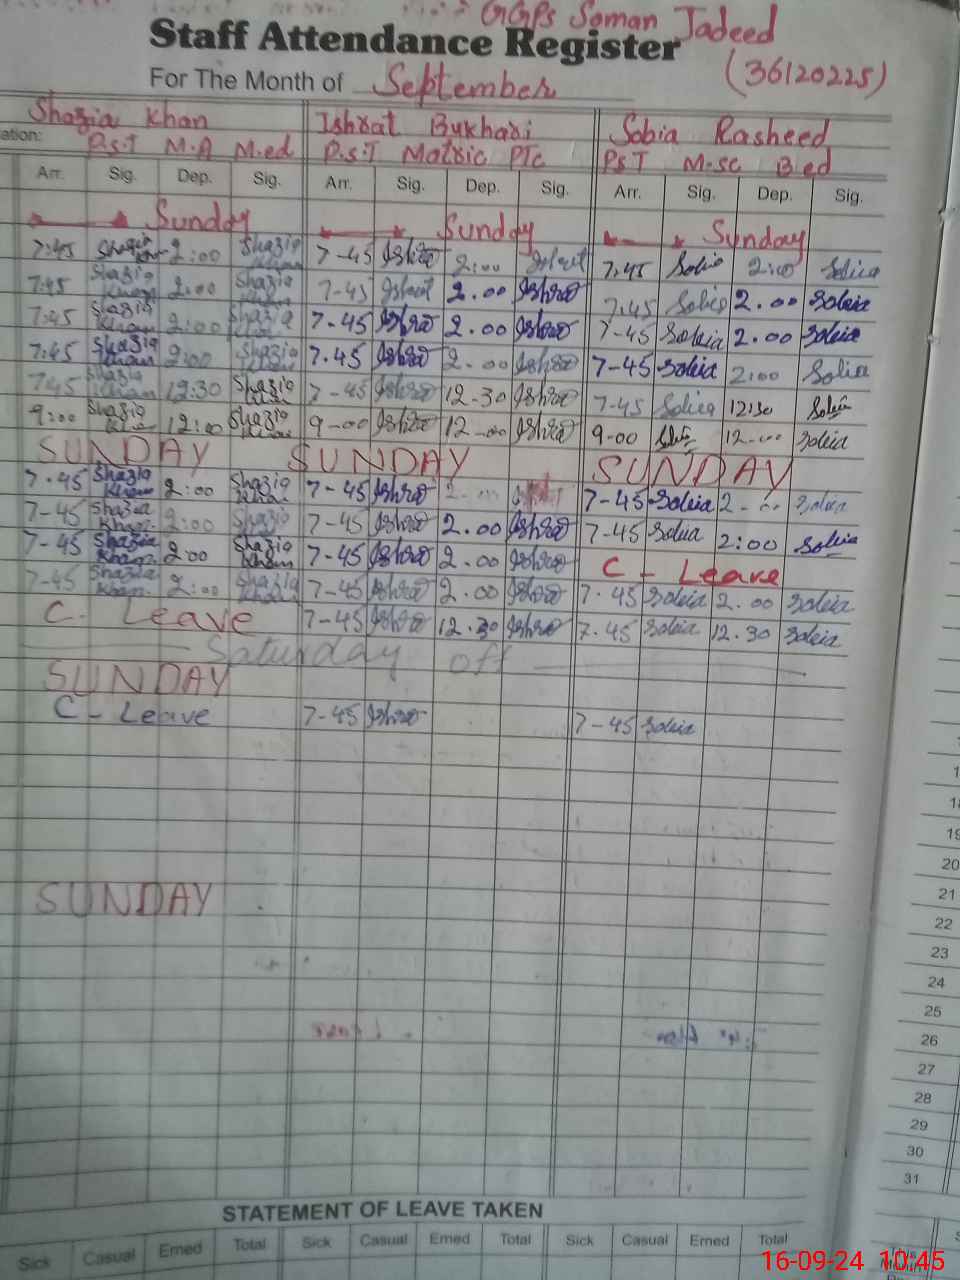 GGPS Soman Jadeed
Staff Attendance Register
(36120225)
For The Month of September
Shazia Khan Ishrat Bukhari Sobia Rasheed
ation: P.S.T M.A M.ed P.S.T Matric PTC PST M.sc B ed
Arr. Sig. Dep. Sig. Arr. Sig. Dep. Sig. Arr. Sig. Dep. Sig.
Sunday Sunday Sunday
7:45 Shazia Khan 2:00 Shazia Khan 7-45 Ishrat 2:00 Ishrat 7:45 Sobia 2:00 Sobia
7:45 Shazia Khan 2:00 Shazia Khan 7-45 Ishrat 2.00 Ishrat 7:45 Sobia 2.00 Sobia
7:45 Shazia Khan 2:00 Shazia 7-45 Ishrat 2.00 Ishrat 7-45 Sobia 2.00 Sobia
7:45 Shazia Khan 2:00 Shazia Khan 7.45 Ishrat 2.00 Ishrat 7-45 Sobia 2:00 Sobia
7:45 Shazia Khan 12:30 Shazia Khan 7-45 Ishrat 12-30 Ishrat 7-45 Sobia 12:30 Sobia
9:00 Shazia 12:00 Shazia Khan 9-00 Ishrat 12-00 Ishrat 9-00 12-00 Sobia
SUNDAY SUNDAY SUNDAY
7.45 Shazia Khan 2:00 Shazia Khan 7-45 Ishrat 7-45 Sobia Sobia
7-45 Shazia Khan 2:00 Shazia Khan 7-45 Ishrat 2.00 Ishrat 7-45 Sobia 2:00 Sobia
7-45 Shazia Khan 2:00 Shazia Khan 7-45 Ishrat 2.00 Ishrat C - Leave
7-45 Shazia Khan 2:00 Shazia Khan 7-45 Ishrat 2.00 Ishrat 7.45 Sobia 2.00 Sobia
C. Leave 7-45 Ishrat 12.30 Ishrat 7.45 Sobia 12.30 Sobia
Saturday off
SUNDAY
C - Leave 7-45 Ishrat 7-45 Sobia
20
SUNDAY 21
22
23
24
25
26
27
28
29
30
31
STATEMENT OF LEAVE TAKEN
Sick Casual Erned Total Sick Casual Erned Total Sick Casual Erned Total
16-09-24 10:45